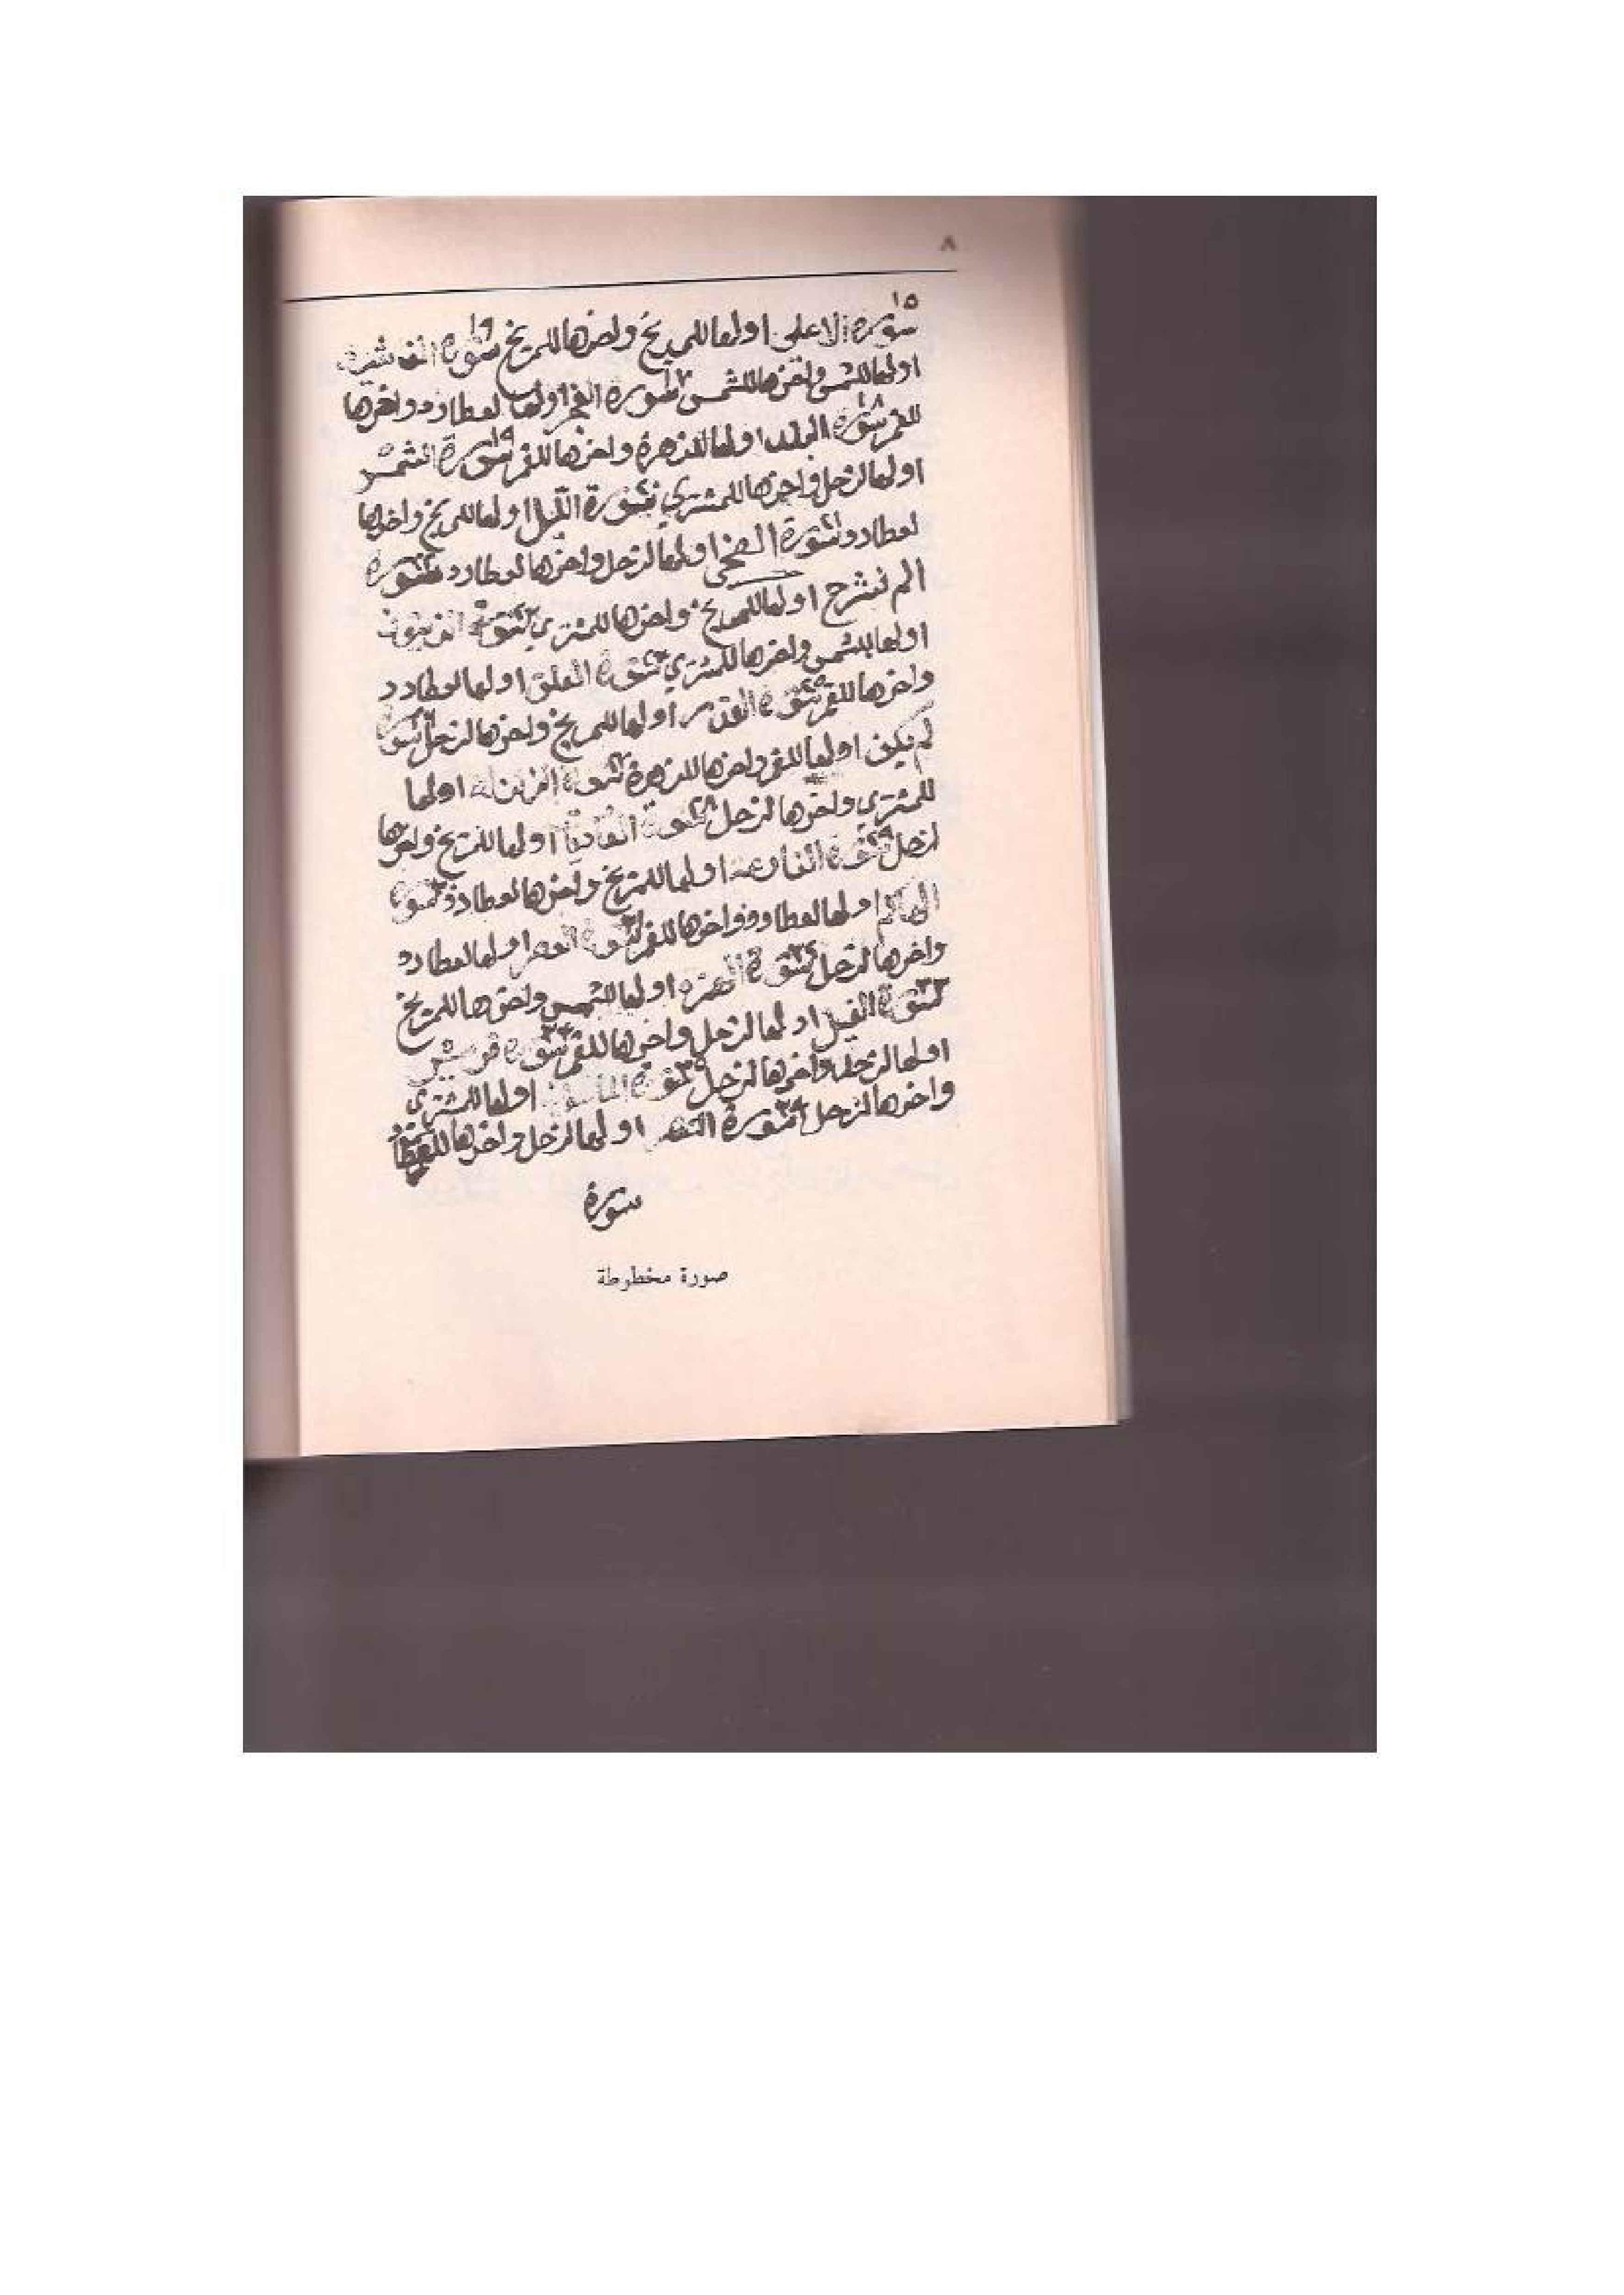 ٨
١٥
سورة الاعلى اولها للمريخ واخرها للمريخ سورة الغاشية
اولها للشمس واخرها للشمس سورة الفجر اولها لعطارد واخرها
للقمر سورة البلد اولها للزهرة واخرها للقمر سورة الشمس
اولها لزحل واخرها للمشتري سورة الليل اولها للمريخ واخرها
لعطارد سورة الضحى اولها لزحل واخرها لعطارد سورة
الم نشرح اولها للمريخ واخرها للمشتري سورة
اولها للشمس واخرها للمشتري سورة العلق اولها لعطارد
واخرها للقمر سورة القدر اولها للمريخ واخرها لزحل سورة
لم يكن اولها للقمر واخرها للزهرة سورة الزلزلة اولها
للمشتري واخرها لزحل سورة العاديا اولها للمريخ واخرها
لزحل سورة القارعة اولها للمريخ واخرها لعطارد سورة
الهاكم اولها لعطارد واخرها للقمر سورة العصر اولها لعطارد
واخرها لزحل سورة الهمزة اولها للشمس واخرها للمريخ
سورة الفيل اولها لزحل واخرها للقمر سورة قريش
اولها لزحل واخرها لزحل سورة اولها للمشتري
واخرها لزحل سورة اولها لزحل واخرها
سورة
صورة مخطوطة